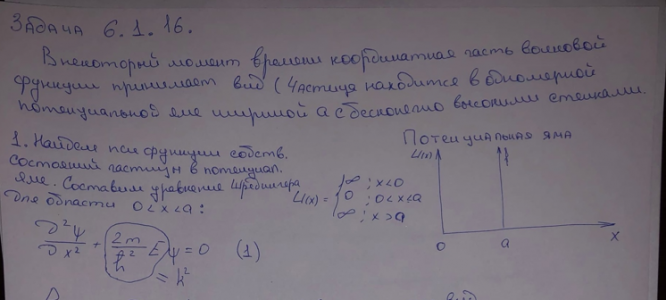 Задача 6.1.16.
В некоторый момент времени координатная часть волновой
функции принимает вид (Частица находится в одномерной
потенциальной яме шириной a с бесконечно высокими стенками.
1. Найдем пси функции собств.
состояний частицы в потенциал.
яме. Составим уравнение Шредингера
для области 0<x<a:
∂²ψ/∂x² + 2m/ħ² E ψ = 0 (1)
= k²
Потенциальная яма
U(x)
U(x) = { ∞ ; x<0
0 ; 0<x<a
∞ ; x>a
0 a x